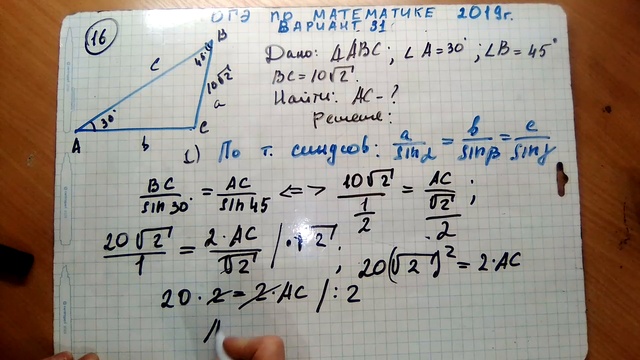 ОГЭ ПО МАТЕМАТИКЕ 2019г.
ВАРИАНТ 31
16
B
45°
c
10√2
a
30°
A
b
C
Дано: ΔABC; ∠A=30°; ∠B=45°
BC=10√2.
Найти: AC-?
Решение:
1) По т. синусов: a/sinα = b/sinβ = c/sinγ
BC/sin30° = AC/sin45 <=> 10√2/(1/2) = AC/(√2/2);
20√2/1 = 2·AC/√2 /·√2; 20(√2)² = 2·AC
20·2=2·AC /:2